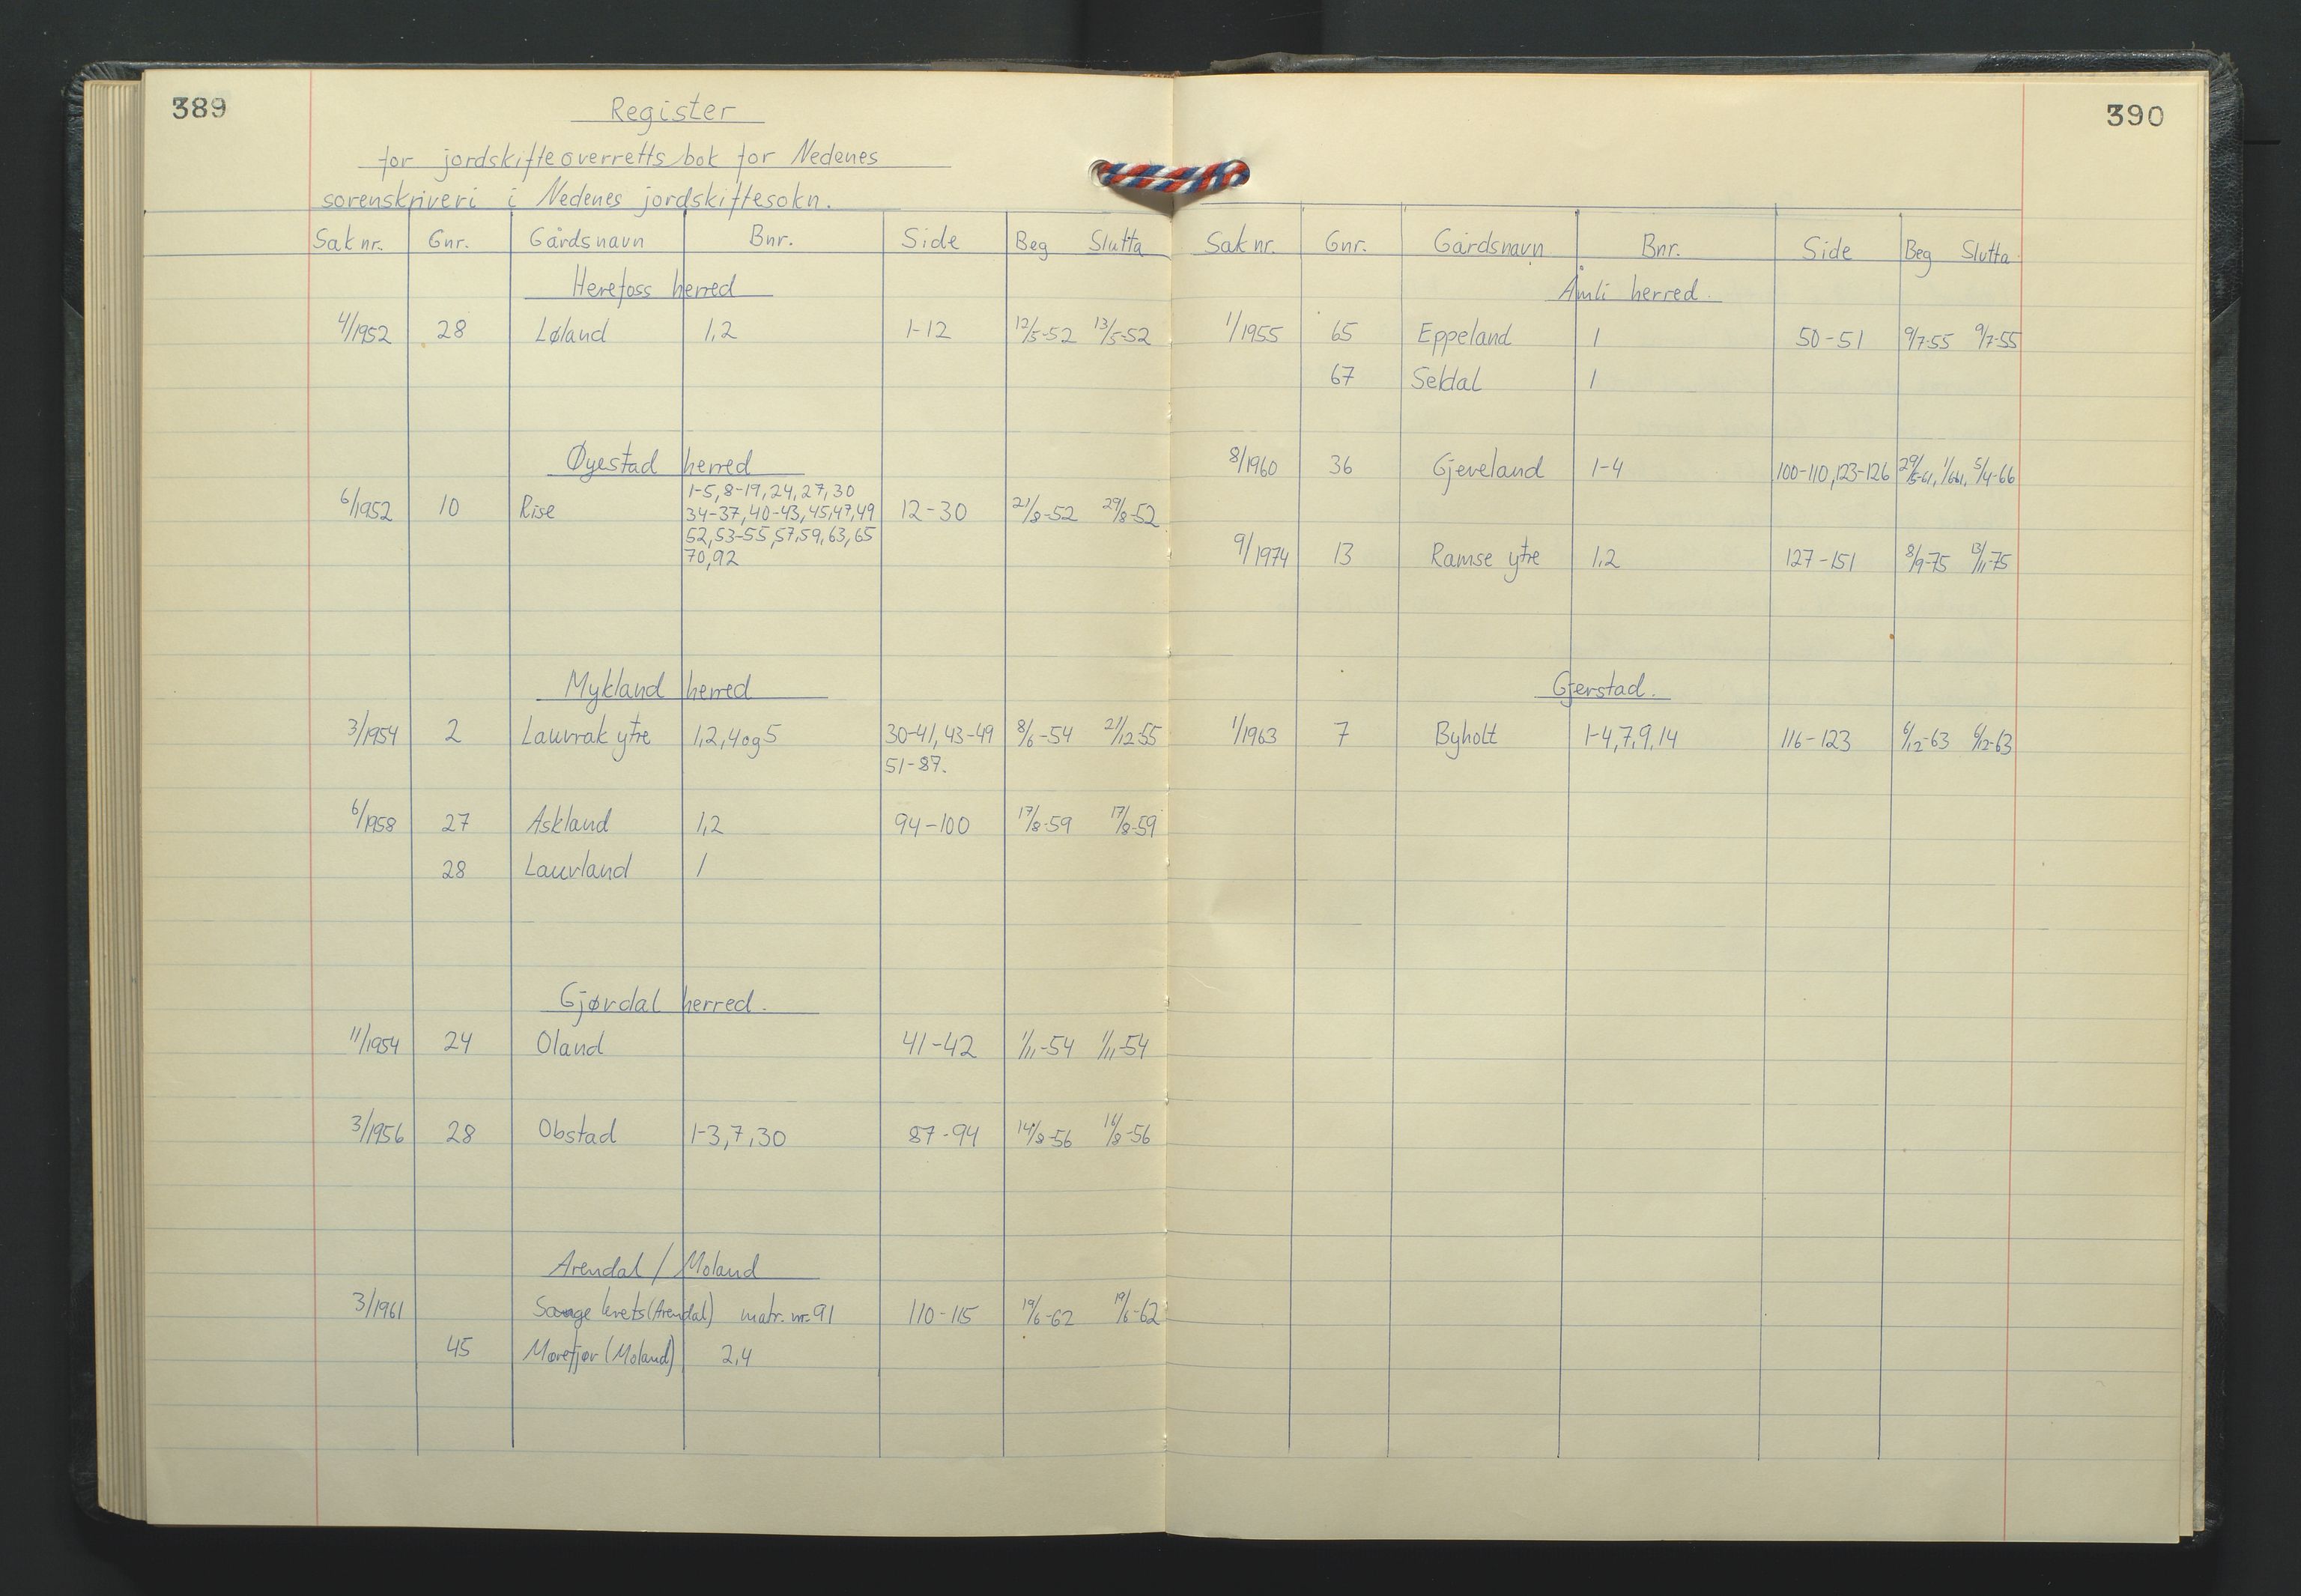 389
Register
for jordskifteoverretts bok for Nedenes
sorenskriveri i Nedenes jordskiftesokn.
Sak nr. Gnr. Gårdsnavn Bnr. Side Beg Slutta
Herefoss herred
4/1952 28 Løland 1,2 1-12 12/5-52 13/5-52
Øyestad herred
1-5, 8-19, 24, 27, 30
6/1952 10 Rise 34-37, 40-43, 45, 47, 49 12-30 21/8-52 29/8-52
52, 53-55, 57, 59, 63, 65
70, 92
Mykland herred
3/1954 2 Lauvrak ytre 1,2,4 og 5 30-41, 43-49 8/6-54 21/12-55
51-87.
6/1958 27 Askland 1,2 94-100 17/8-59 17/8-59
28 Laurland 1
Gjøvdal herred.
11/1954 24 Oland 41-42 1/11-54 1/11-54
3/1956 28 Obstad 1-3, 7, 30 87-94 14/8-56 16/8-56
Arendal / Moland
3/1961 krets (Arendal) matr. nr. 91 110-115 19/6-62 19/6-62
45 Morefjær (Moland) 2,4
390
Sak nr. Gnr. Gårdsnavn Bnr. Side Beg Slutta
Åmli herred.
1/1955 65 Eppeland 1 50-51 9/7-55 9/7-55
67 Seldal 1
8/1960 36 Gjeveland 1-4 100-110, 123-126 29/5-61, 1/6-61, 5/4-66
9/1974 13 Ramse ytre 1,2 127-151 8/9-75 13/11-75
Gjerstad.
1/1963 7 Byholt 1-4, 7, 9, 14 116-123 6/12-63 6/12-63